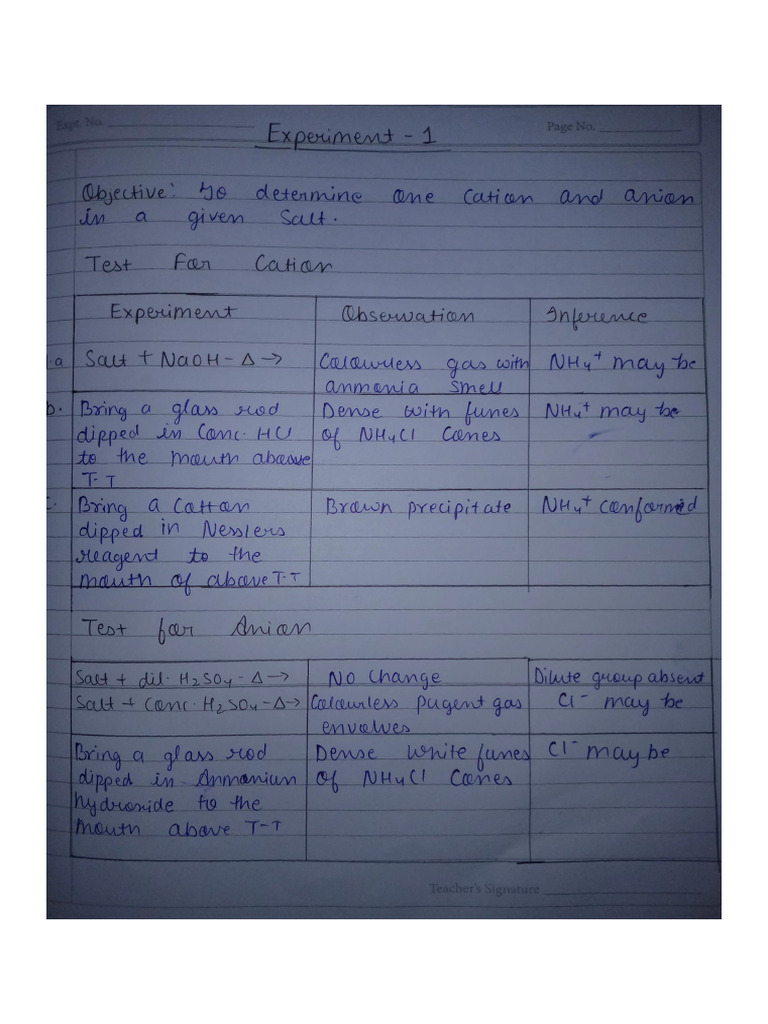 Expt. No.
Page No.
Experiment - 1
Objective: To determine one Cation and anion
in a given Salt.
Test For Cation
Experiment Observation Inference
a Salt + NaOH - Δ → Colourless gas with NH₄⁺ may be
anmonia smell
b. Bring a glass rod Dense with funes NH₄⁺ may be
dipped in Conc. HCl of NH₄Cl Comes
to the mouth above
T-T
c. Bring a Cotton Brown precipitate NH₄⁺ conformed
dipped in Nesslers
reagend to the
mouth of above T-T
Test for Anion
Salt + dil. H₂SO₄ - Δ → No Change Dilute group absent
Salt + Conc. H₂SO₄ - Δ → Colourless pugent gas Cl⁻ may be
envolves
Bring a glass rod Dense white funes Cl⁻ may be
dipped in Anmonium of NH₄Cl Comes
hydroxide to the
mouth above T-T
Teacher's Signature